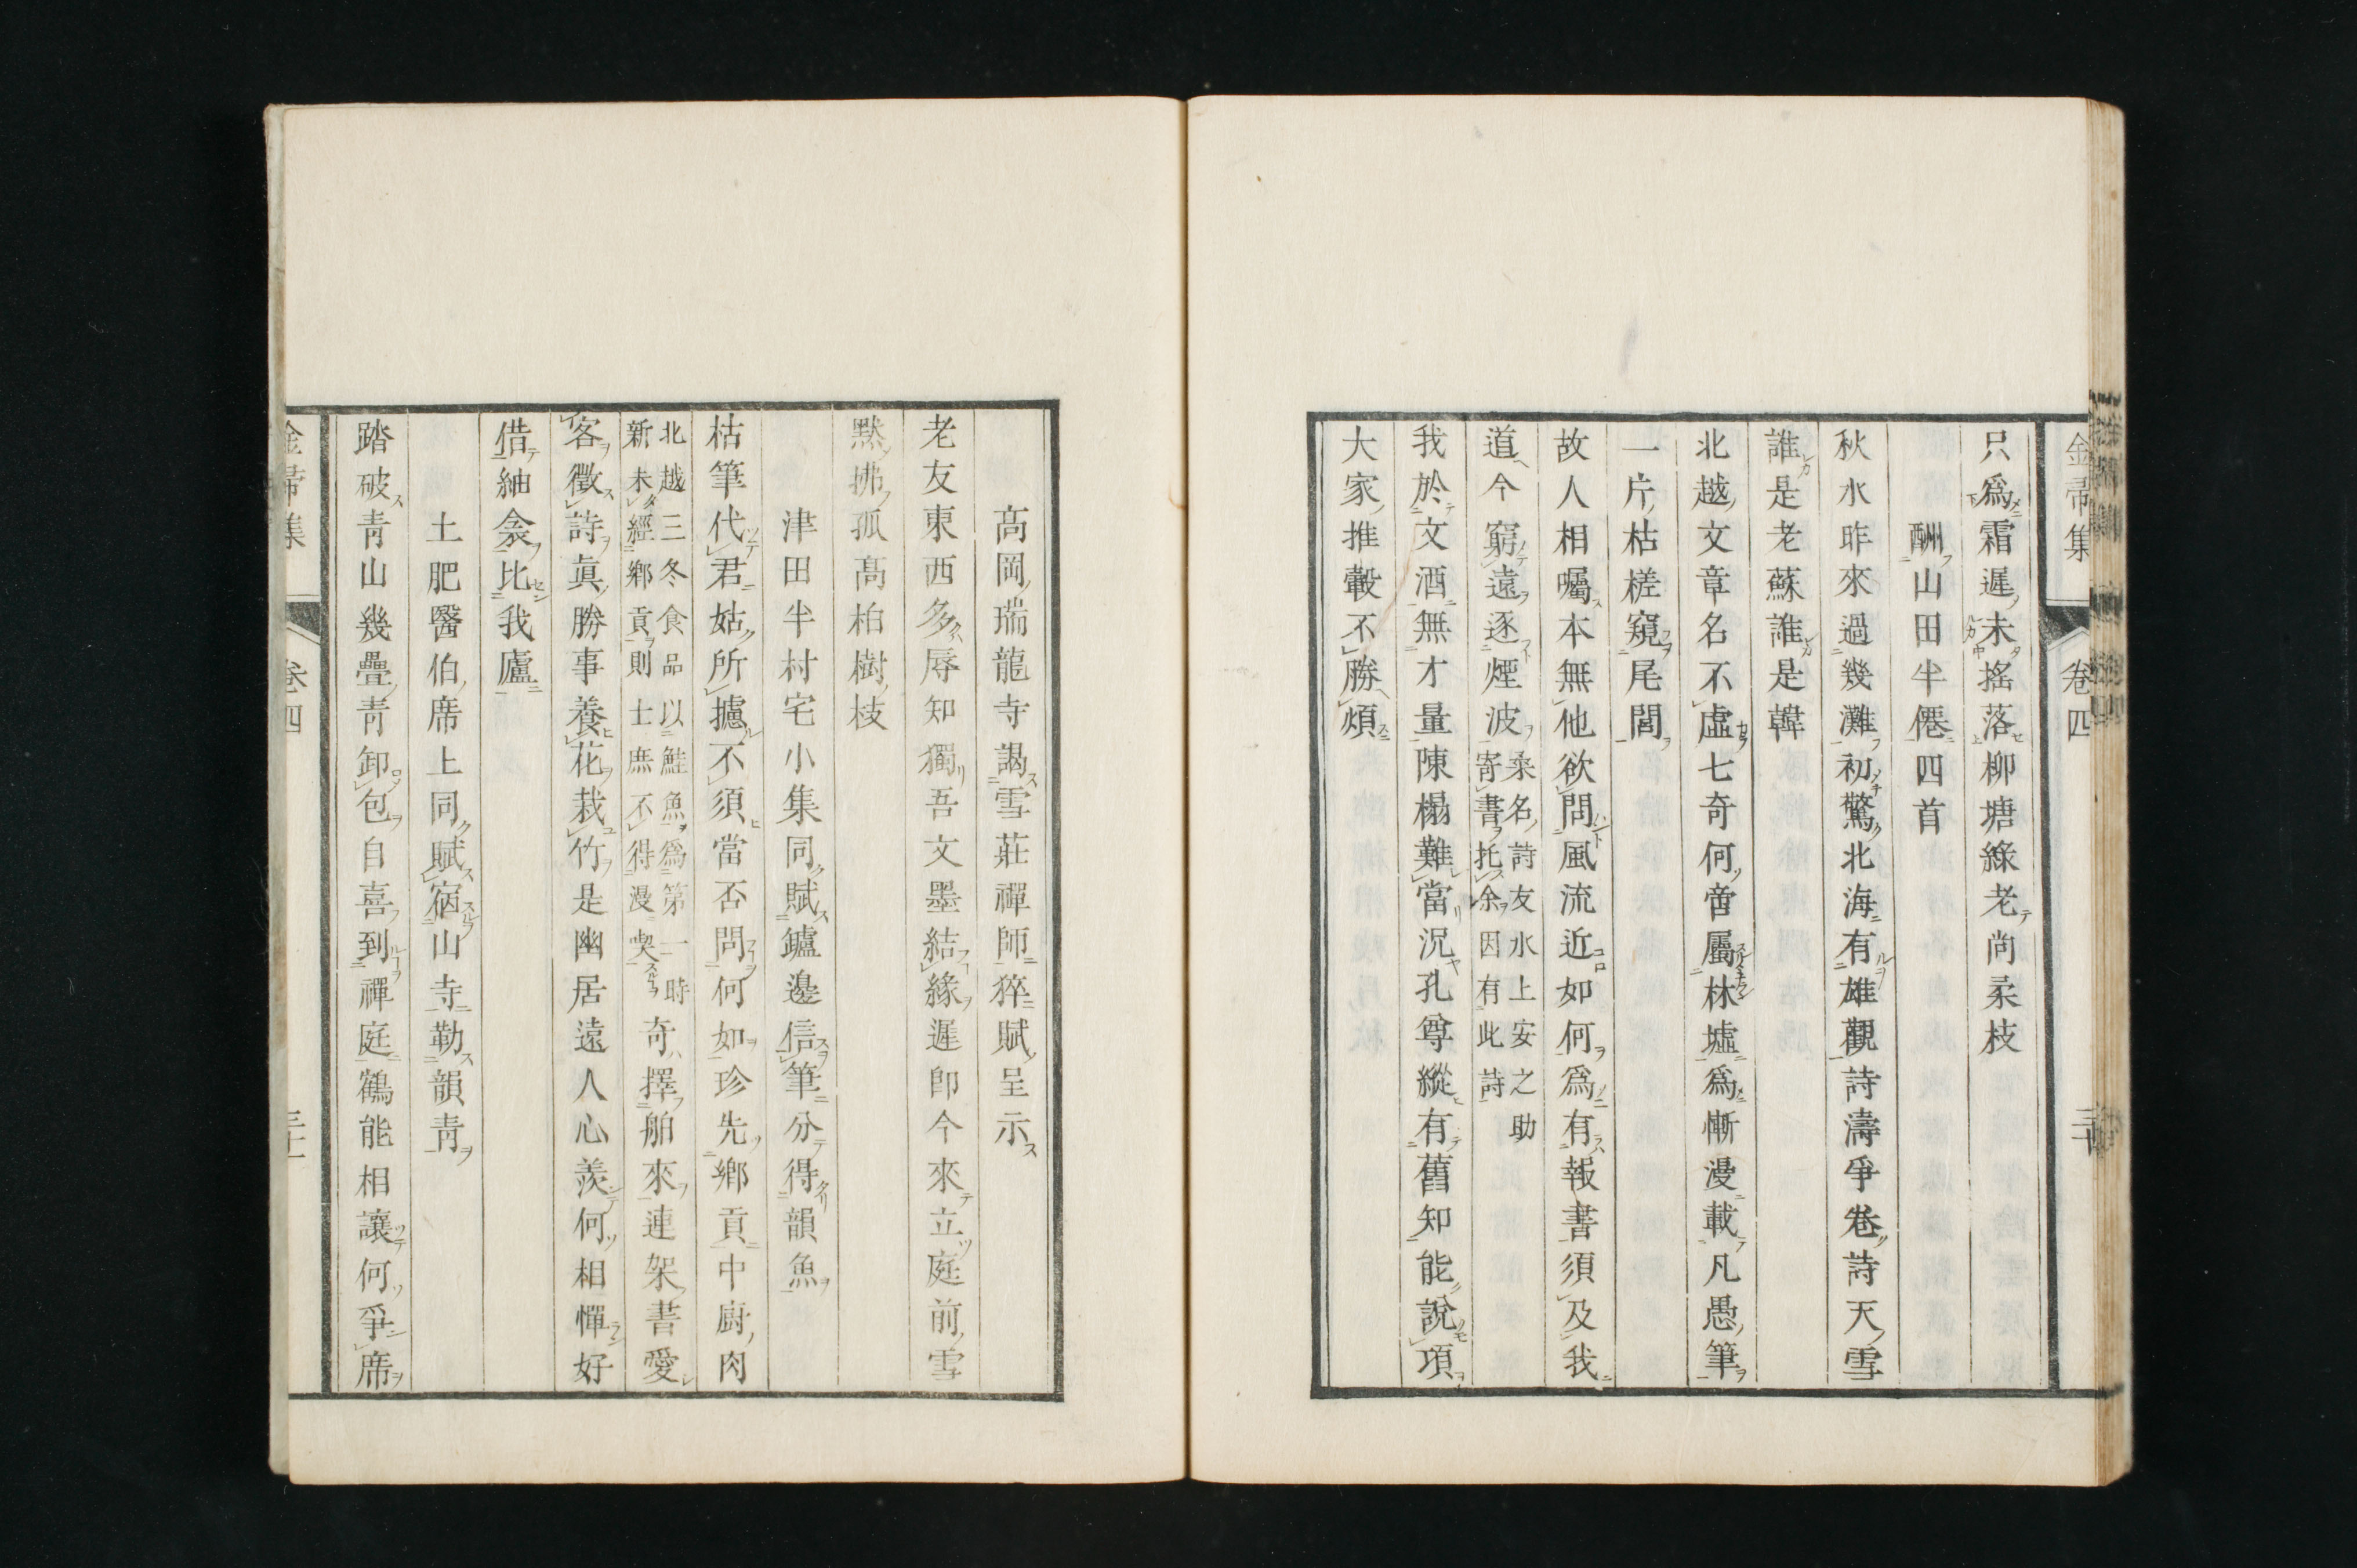 金帚集 卷四 三十
只爲霜遲未搖落柳塘綠老尚柔枝
酬山田半僊四首
秋水昨來過幾灘初驚北海有雄觀詩濤爭卷詩天雪
誰是老蘇誰是韓
北越文章名不虛七奇何啻屬林墟爲慚漫載凡愚筆
一片枯槎窺尾閭
故人相囑本無他欲問風流近如何爲有報書須及我
道今窮遠逐煙波
桑名詩友水上安之助
寄書托余因有此詩
我於文酒無才量陳榻難當況孔尊縱有舊知能說項
大家推轂不勝煩
高岡瑞龍寺謁雪莊禪師猝賦呈示
老友東西多辱知獨吾文墨結緣遲卽今來立庭前雪
默拂孤高柏樹枝
津田半村宅小集同賦鑪邊信筆分得韻魚
枯筆代君姑所攄不須當否問何如珍先鄉貢中廚肉
北越三冬食品以鮭魚爲第一時
新未經鄉貢則士庶不得漫喫
奇擇舶來連架書愛
客徵詩眞勝事養花栽竹是幽居遠人心羨何相憚好
借紬衾比我廬
土肥醫伯席上同賦宿山寺勒韻靑
踏破靑山幾疊靑卸包自喜到禪庭鶴能相讓何爭席
金帚集 卷四